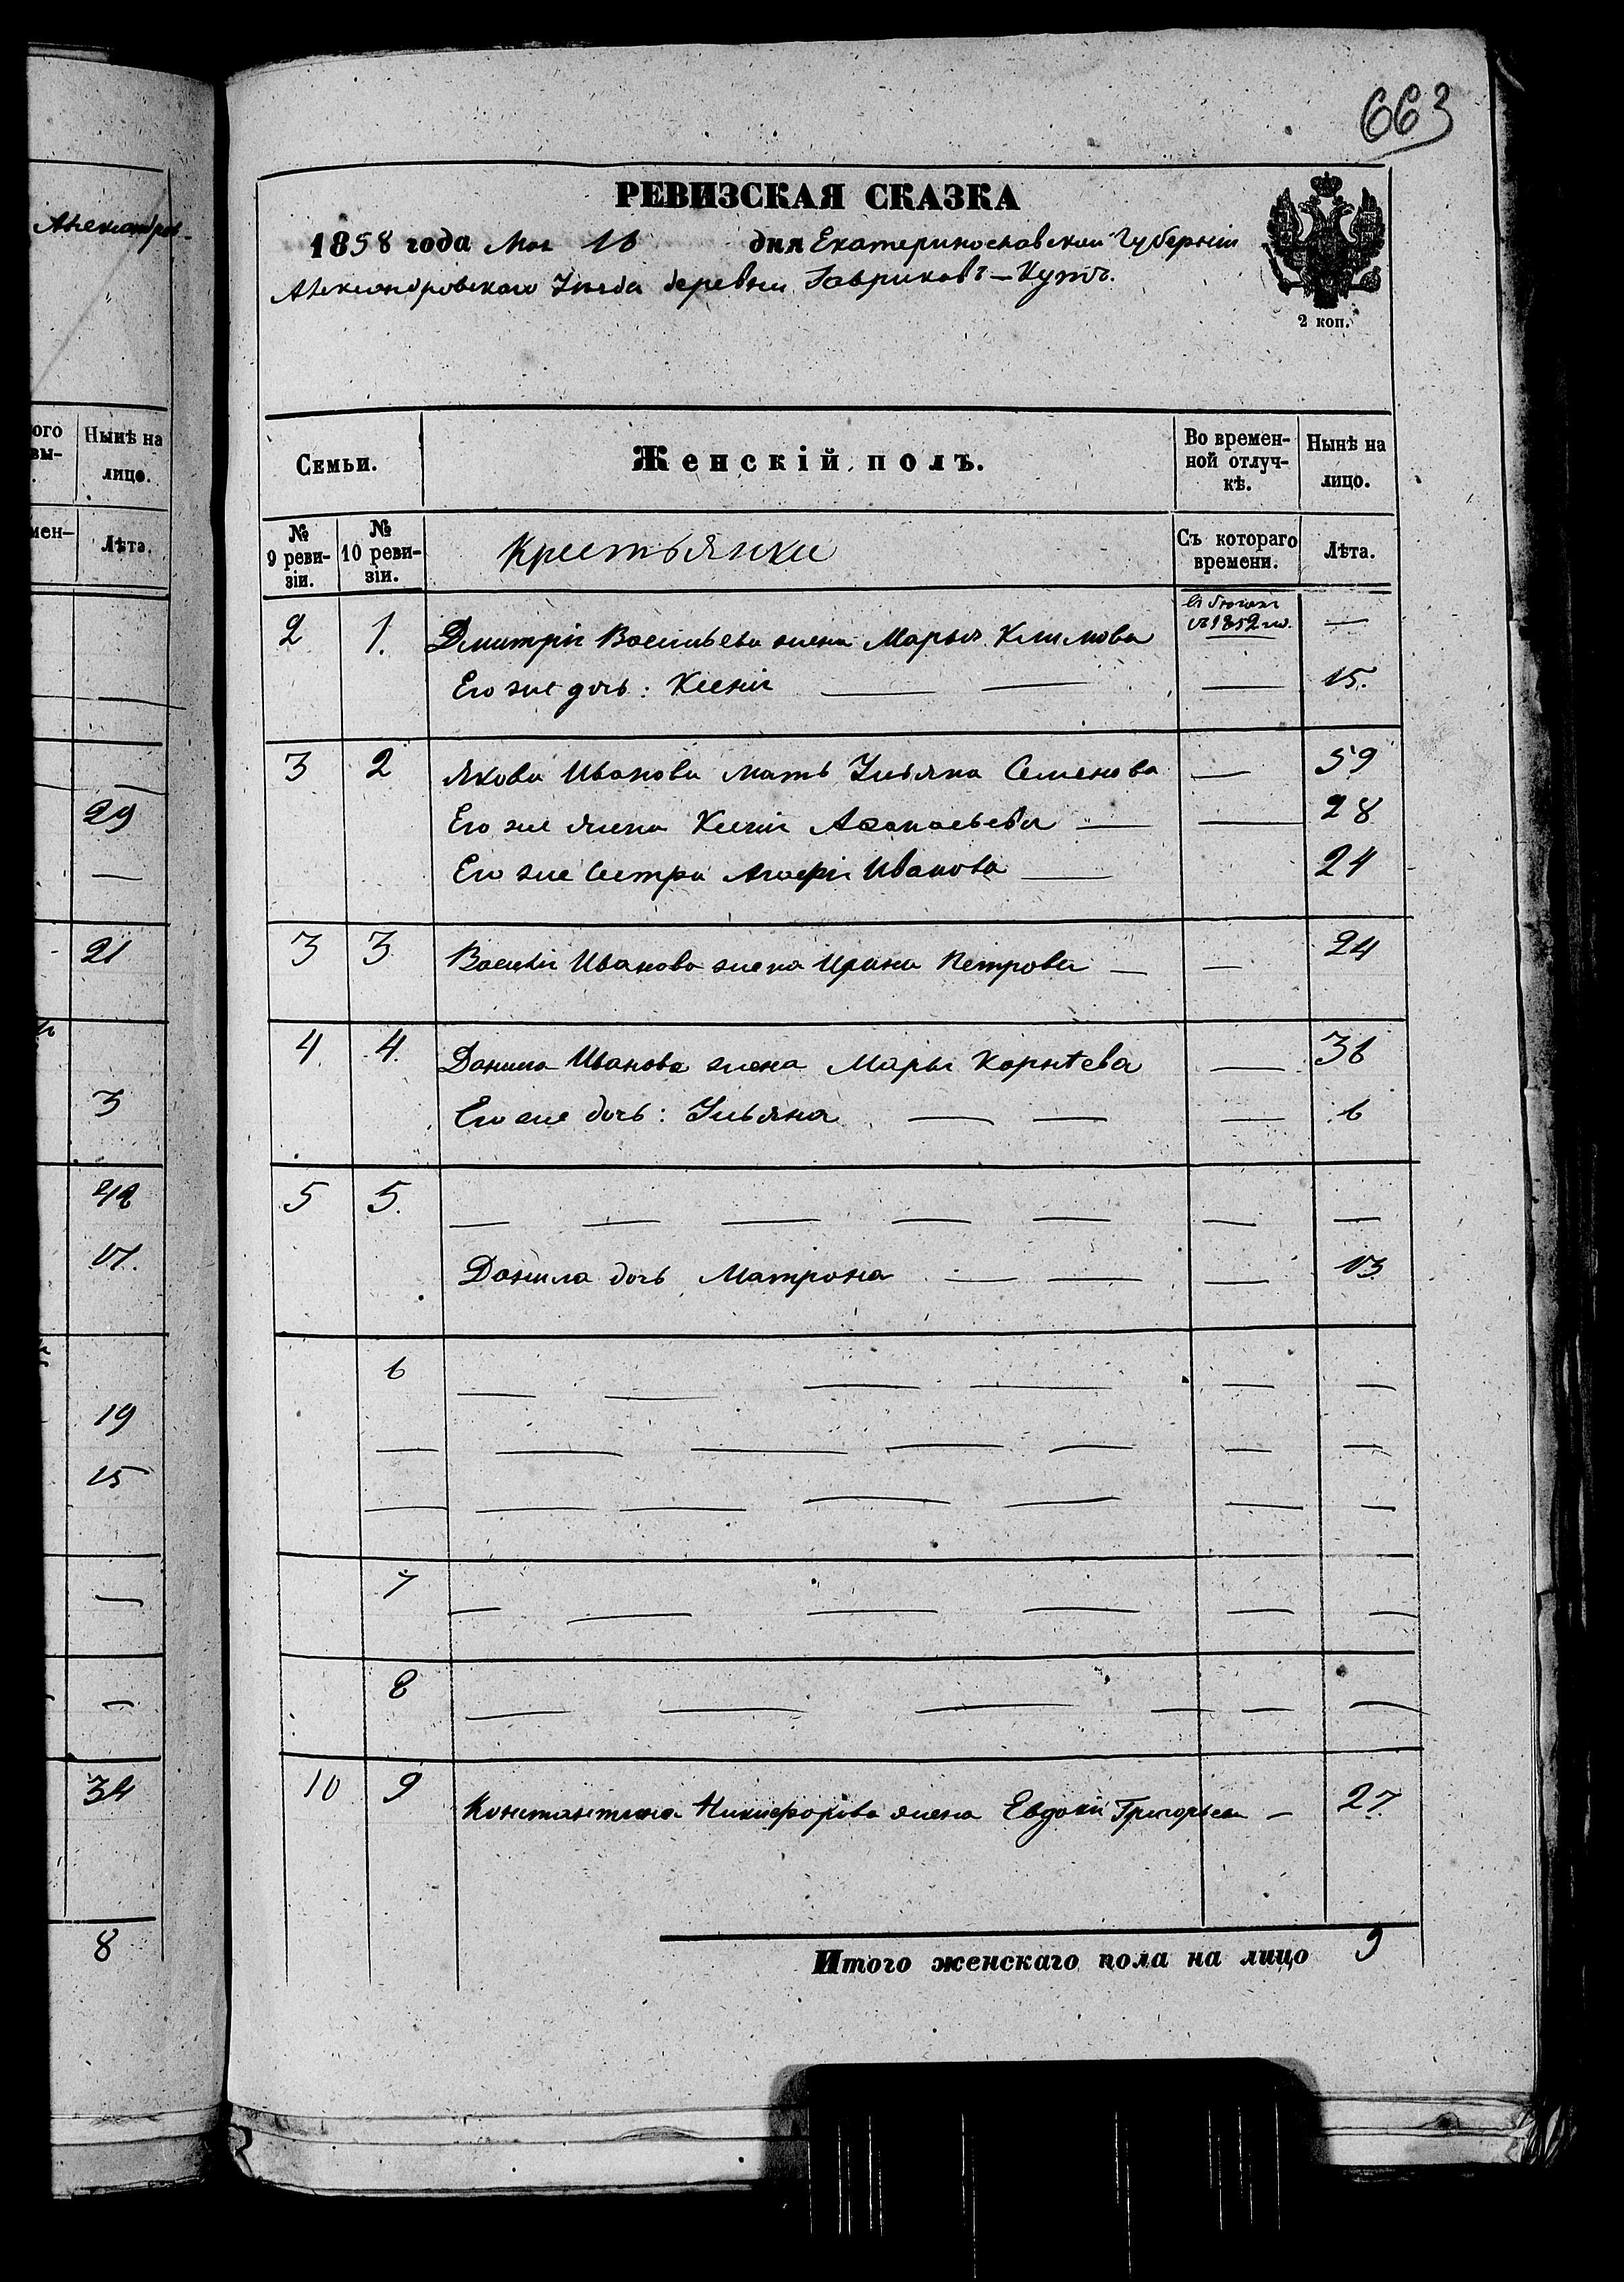 663
РЕВИЗСКАЯ СКАЗКА
1858 года Мая 16 дня Екатеринославской Губерніи
Александровскаго Уезда деревни Гавриковъ-Кутъ.
2 коп.
Александров-
ого
вы-
Нынѣ на
лицо.
мен-
Лѣта.
29
21
3
42
17.
19
15
34
8
Семьи.
Женскій полъ.
Во времен-
ной отлуч-
кѣ.
Нынѣ на
лицо.
№
9 реви-
зіи.
№
10 реви-
зіи.
Крестьянки
Съ котораго
времени.
Лѣта.
2 1. Дмитрія Васильева жена Марья Климова въ бегахъ —
съ 1852 го.
Его же дочь: Ксенія — — — 15.
3 2 Якова Иванова мать Ульяна Семенова — 59
Его же жена Ксенія Афанасьева — — 28
Его же Сестра Иванова — 24
3 3 Василія Иванова жена Ирина Петрова — — 24
4 4. Данила Иванова жена Марья Корнѣева — 36
Его же дочь: Ульяна — — — 6
5 5. — — — — — — —
Данила дочь Матрона — — — 13
6 — — — — — —
— — — — — — —
— — — — — — —
7 — — — — — —
8 — — — — — —
10 9 Константина Никифорова жена Евдокія Григорьева — 27.
Итого женскаго пола на лицо 9